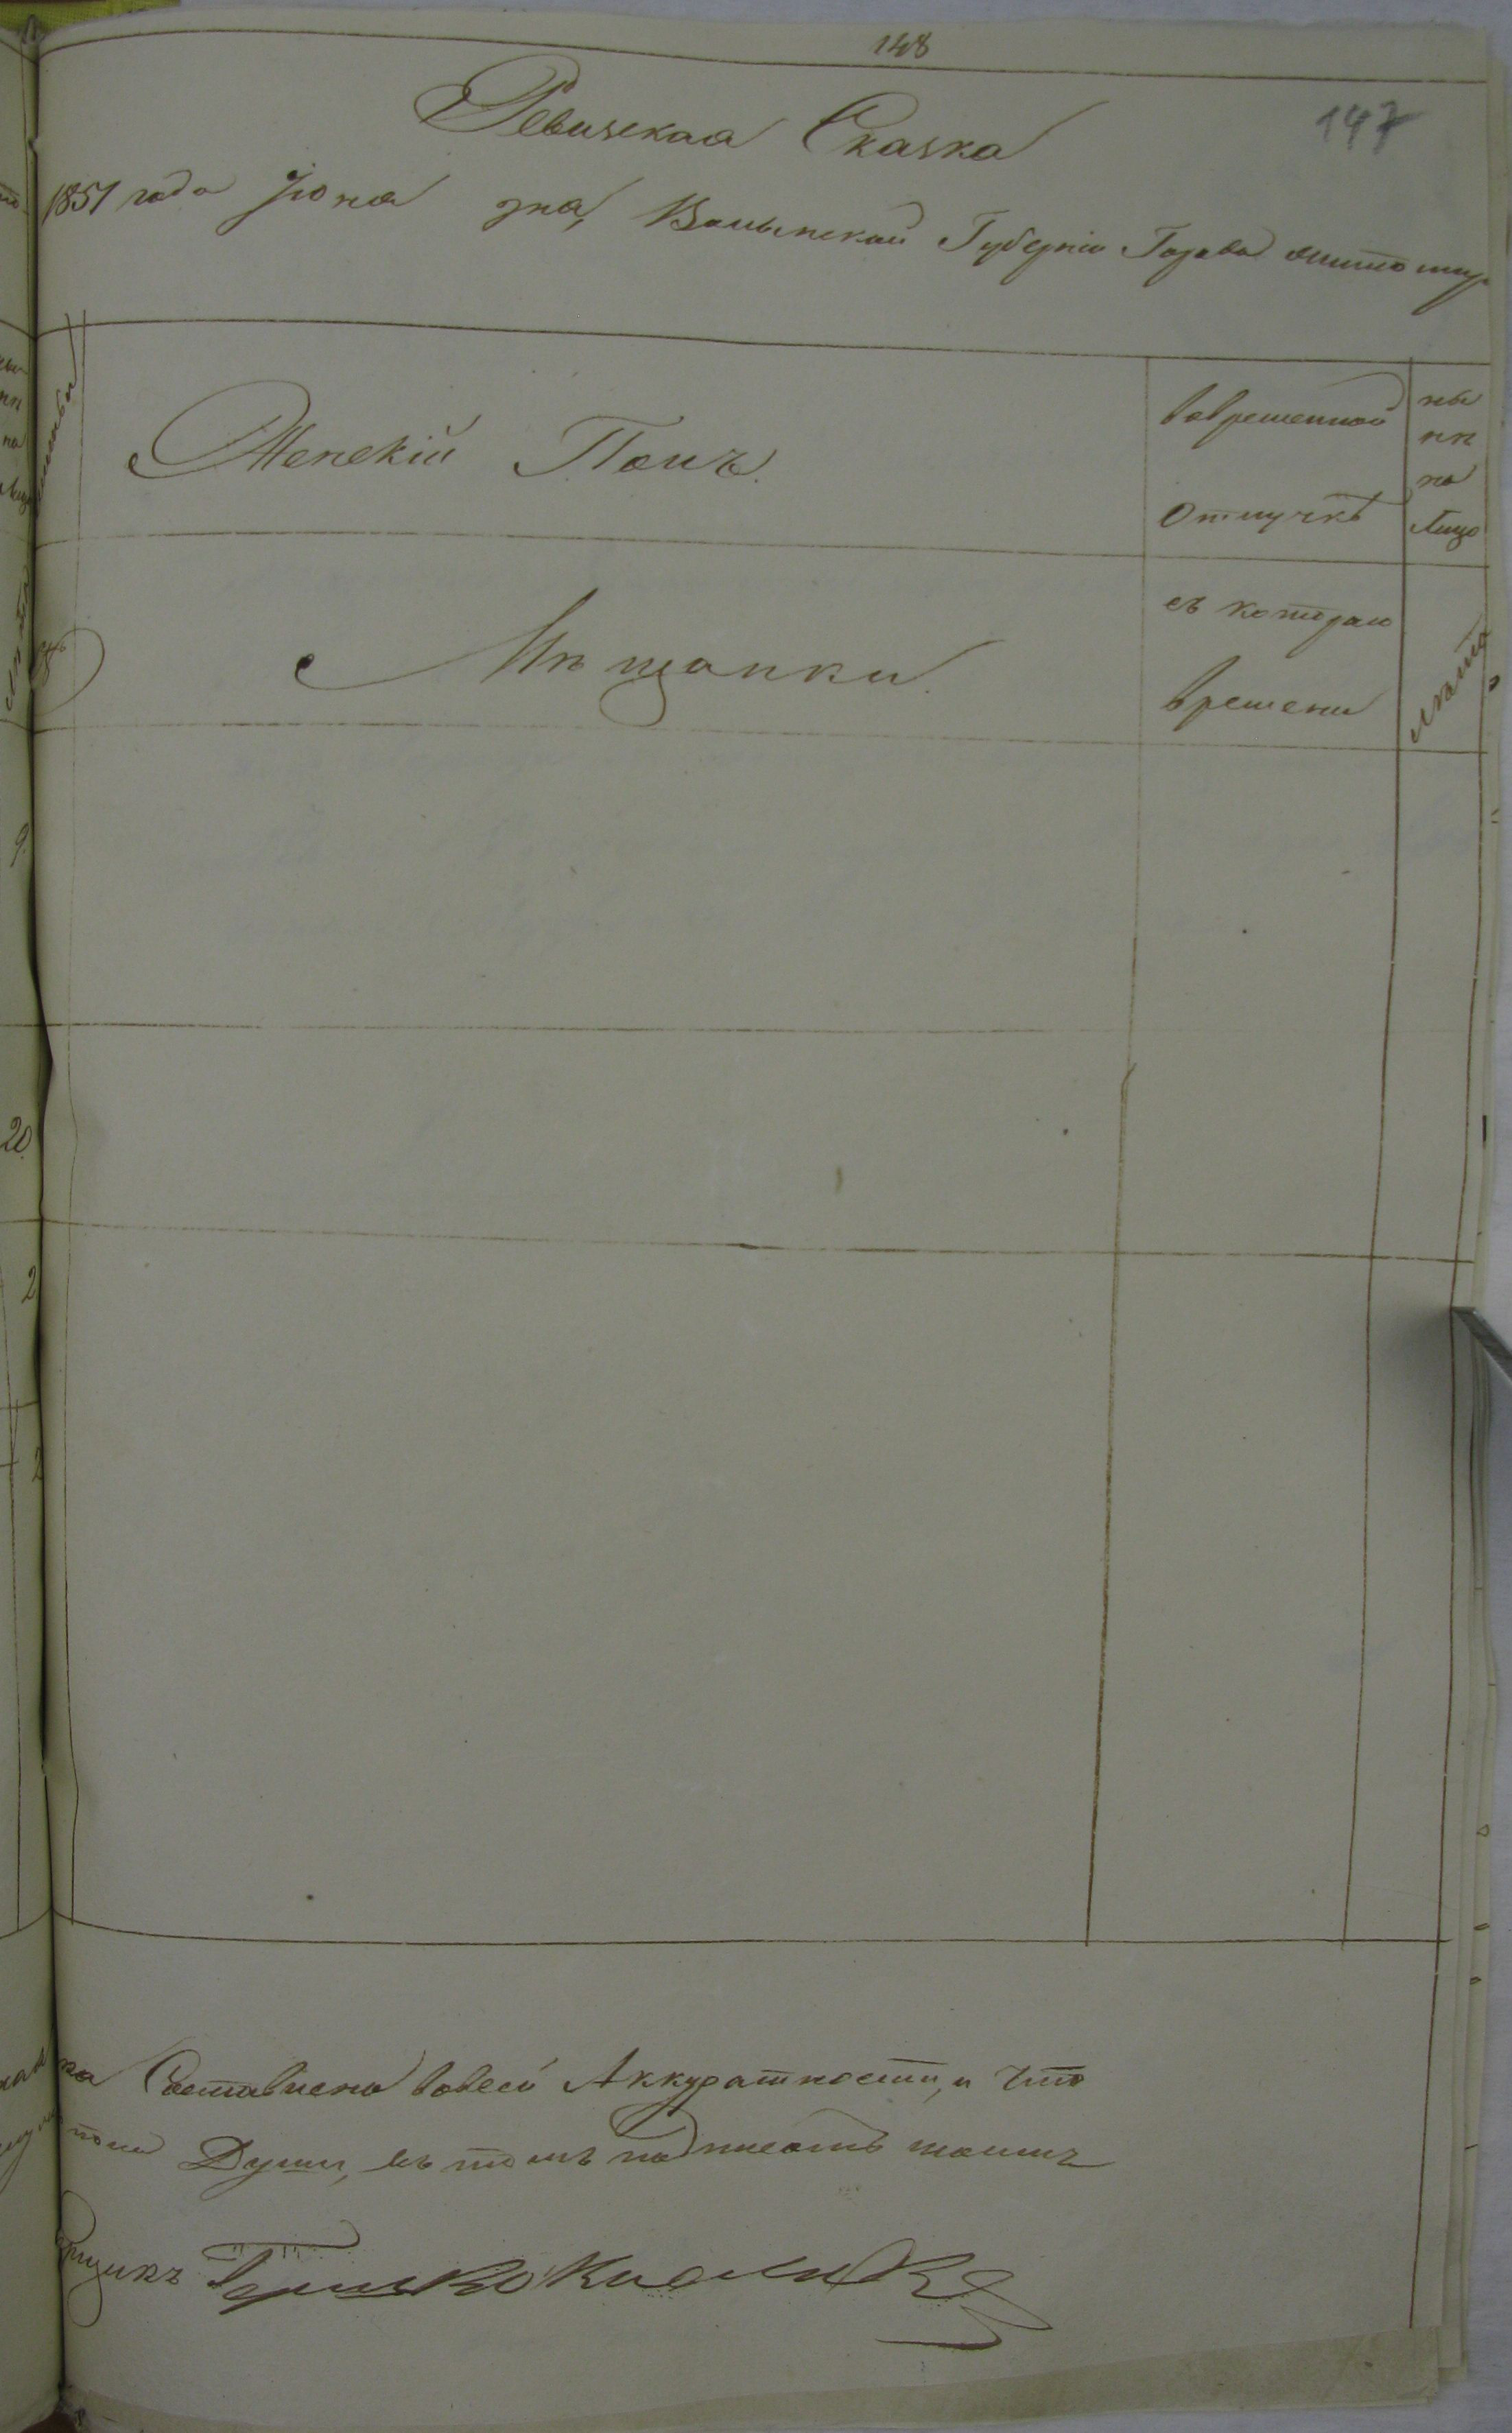 148
147
Ревизская Сказка
1851 года Іюня дня, Волынской Губерніи Города Житомир
Женскій Полъ.
вовременной
Отлучкѣ
ны
нѣ
на
Лицо
Мѣщанки.
съ котораго
времени
Лѣта
9
20.
2
2
ка Составлена вовсей Аккуратности, и что
Души, въ томъ подписомъ моимъ